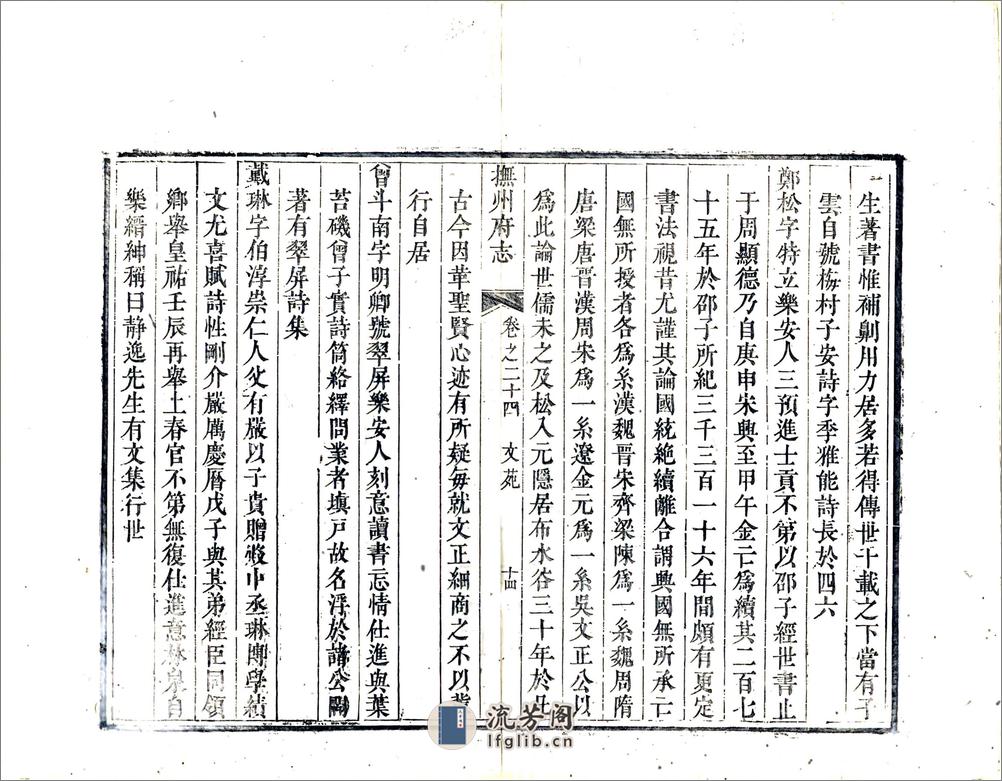 一生著書惟補劓用力居多若得傳世千載之下當有子
雲自號梅村子安詩字季雅能詩長於四六
鄭松字特立樂安人三預進士貢不第以邵子經世書止
于周顯德乃自庚申宋興至甲午金亡爲續其二百七
十五年於邵子所紀三千三百一十六年間頗有更定
書法視昔尤謹其論國統絶續離合謂興國無所承亡
國無所授者各爲系漢魏晋宋齊梁陳爲一系魏周隋
唐梁唐晋漢周宋爲一系遼金元爲一系吳文正公以
爲此論世儒未之及松入元隱居布水谷三十年於
撫州府志 卷之二十四 文苑 十四
古今因革聖賢心迹有所疑每就文正細商之不以
行自居
曾斗南字明卿號翠屏樂安人刻意讀書忘情仕進與葉
苔磯曾子實詩筒絡繹問業者塡戸故名浮於諸公間
著有翠屏詩集
戴琳字伯淳崇仁人父有嚴以子貴贈殿中丞琳博學績
文尤喜賦詩性剛介嚴厲慶曆戊子與其弟經臣同領
鄉舉皇祐壬辰再舉上春官不第無復仕進意林泉自
樂縉紳稱曰靜逸先生有文集行世
流芳阁
lfglib.cn